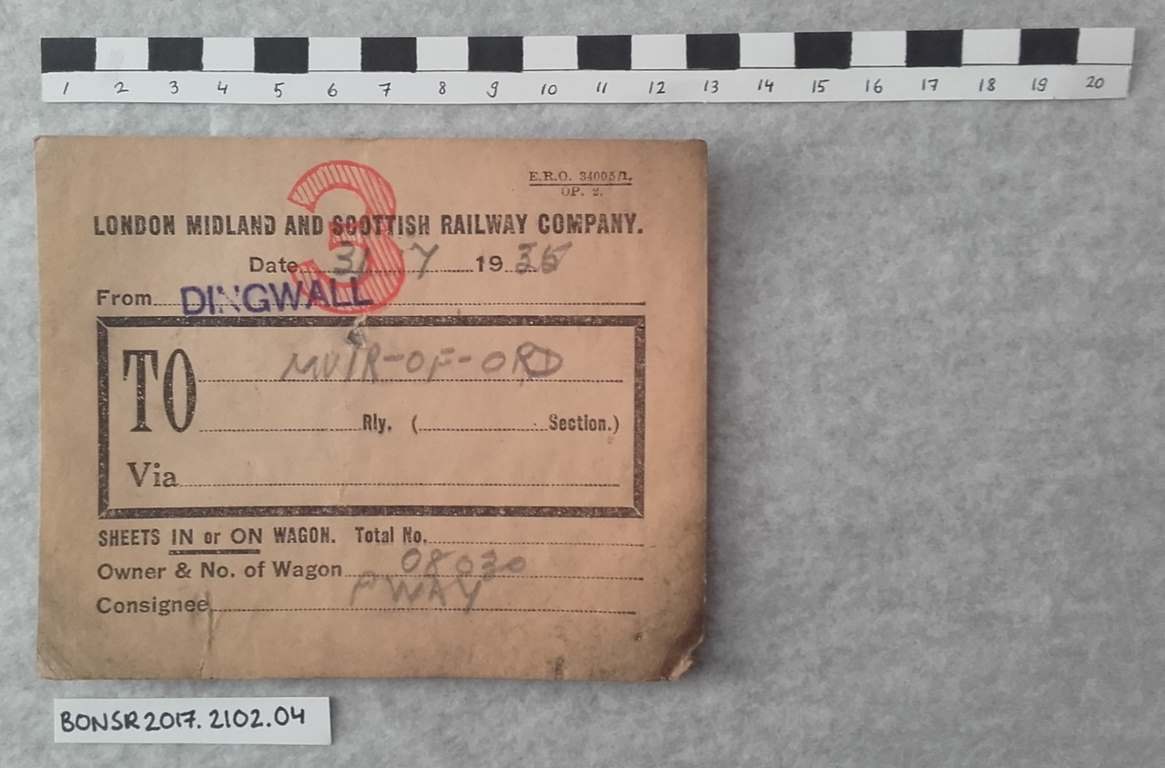 1 2 3 4 5 6 7 8 9 10 11 12 13 14 15 16 17 18 19 20
3
E.R.O. 34005/1.
OP. 2.
LONDON MIDLAND AND SCOTTISH RAILWAY COMPANY.
Date 31 7 19
From DINGWALL
TO MUIR-OF-ORD
Rly. ( Section.)
Via
SHEETS IN or ON WAGON. Total No.
Owner & No. of Wagon 08030
Consignee PWAY
BONSR2017.2102.04